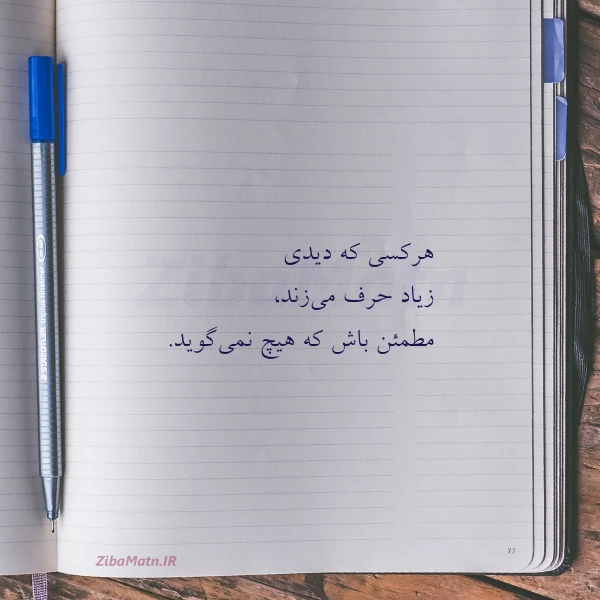 هرکسی که دیدی
زیاد حرف می‌زند،
مطمئن باش که هیچ نمی‌گوید.
ZibaMatn.IR